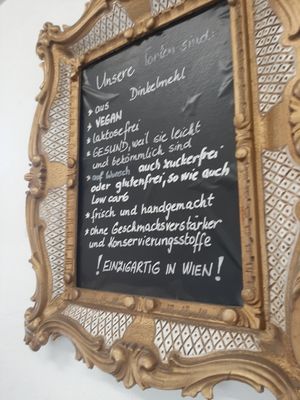 Unsere Torten sind:
* aus Dinkelmehl
* VEGAN
* laktosefrei
* GESUND, weil sie leicht
und bekömmlich sind
* auf Wunsch auch zuckerfrei
oder glutenfrei, so wie auch
Low carb
* frisch und handgemacht
* ohne Geschmacksverstärker
und Konservierungsstoffe
! EINZIGARTIG IN WIEN !